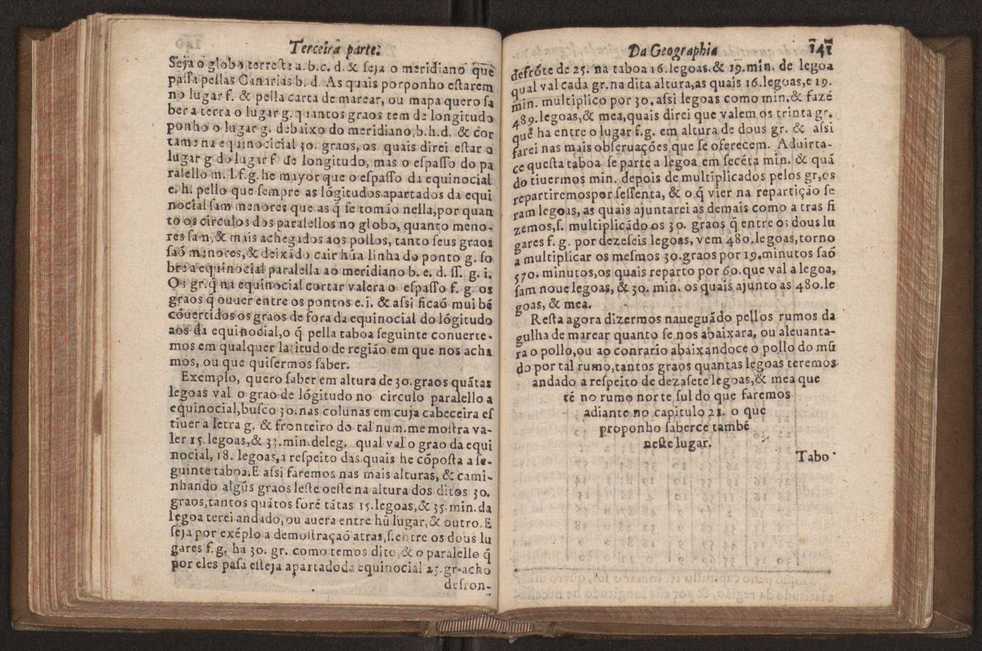 Terceira parte.
Seja o globo terreste a.b.c.d. & seja o meridiano que
passa pellas Canarias b.d. As quais porponho estarem
no lugar f. & pella carta de marear, ou mapa quero sa
ber a terra o lugar g. quantos graos tem de longitudo
ponho o lugar g. debaixo do meridiano b.h.d. & cor
tame na equinocicial 30. graos, os quais direi estar o
lugar g do lugar f de longitudo, mas o espasso do pa
ralello m. l.f.g. he mayor que o espasso da equinocial
e.h. pello que sempre as lõgitudos apartados da equi
nocial sam menores que as q̃ se tomão nella, por quan
to os circulos dos paralellos no globo, quanto meno-
res sam, & mais achegados aos pollos, tanto seus graos
saõ menores, & deixãdo cair hũa linha do ponto g. so
bre a equinocial paralella ao meridiano b. e. d. ss. g. i.
Os gr. q̃ na equinocial cortar valera o espasso f. g. os
graos q̃ ouuer entre os pontos e.i. & assi ficaõ mui bẽ
cõuertidos os graos de fora da equinocial do lõgitudo
aos da equinocial, o q̃ pella taboa seguinte conuerte-
mos em qualquer latitudo de região em que nos acha
mos, ou que quisermos saber.
Exemplo, quero saber em altura de 30. graos quãtas
legoas val o grao de lõgitudo no circulo paralello a
equinocial, busco 30. nas colunas em cuja cabeceira es
tiuer a letra g. & fronteiro do tal num. me mostra va-
ler 15. legoas, & 35. min. de leg. qual val o grao da equi
nocial, 18. legoas, a respeito das quais he cõposta a se-
guinte taboa. E assi faremos nas mais alturas, & cami-
nhando algũs graos leste oeste na altura dos ditos 30.
graos, tantos quãtos forẽ tãtas 15. legoas, & 35. min. da
legoa terei andado, ou auera entre hũ lugar, & outro. E
seja por exẽplo a demostraçaõ atras, s. entre os dous lu
gares f.g. ha 30. gr. como temos dito, & o paralello q̃
por eles pasa esteja apartado da equinocial 25. gr. acho
defron-
Da Geographia 141
defrõte de 25. na taboa 16. legoas. & 19. min. de legoa
qual val cada gr. na dita altura, as quais 16. legoas, e 19.
min. multiplico por 30. assi legoas como min. & fazẽ
489. legoas, & mea, quais direi que valem os trinta gr.
quẽ ha entre o lugar f.g. em altura de dous gr. & assi
farei nas mais obseruações que se oferecem. Aduirta-
ce questa taboa se parte a legoa em secẽta min. & quã
do tiuermos min. depois de multiplicados pelos gr, os
repartiremos por sessenta, & o q̃ vier na repartição se
ram legoas, as quais ajuntarei as demais como a tras fi
zemos, s. multiplicãdo os 30. graos q̃ entre os dous lu
gares f. g. por dezeseis legoas, vem 480. legoas, torno
a multiplicar os mesmos 30. graos por 19. minutos saõ
570. minutos, os quais reparto por 60. que val a legoa,
sam noue legoas, & 30. min. os quais ajunto as 480. le
goas, & mea.
Resta agora dizermos naueguãdo pellos rumos da
gulha de marear quanto se nos abaixara, ou aleuanta-
ra o pollo, ou ao conrario abaixandoce o pollo do mũ
do por tal rumo, tantos graos quantas legoas teremos
andado a respeito de dezasete legoas, & mea que
té no rumo norte sul do que faremos
adiante no capitulo 21. o que
proponho saberce tambẽ
neste lugar.
Tabo